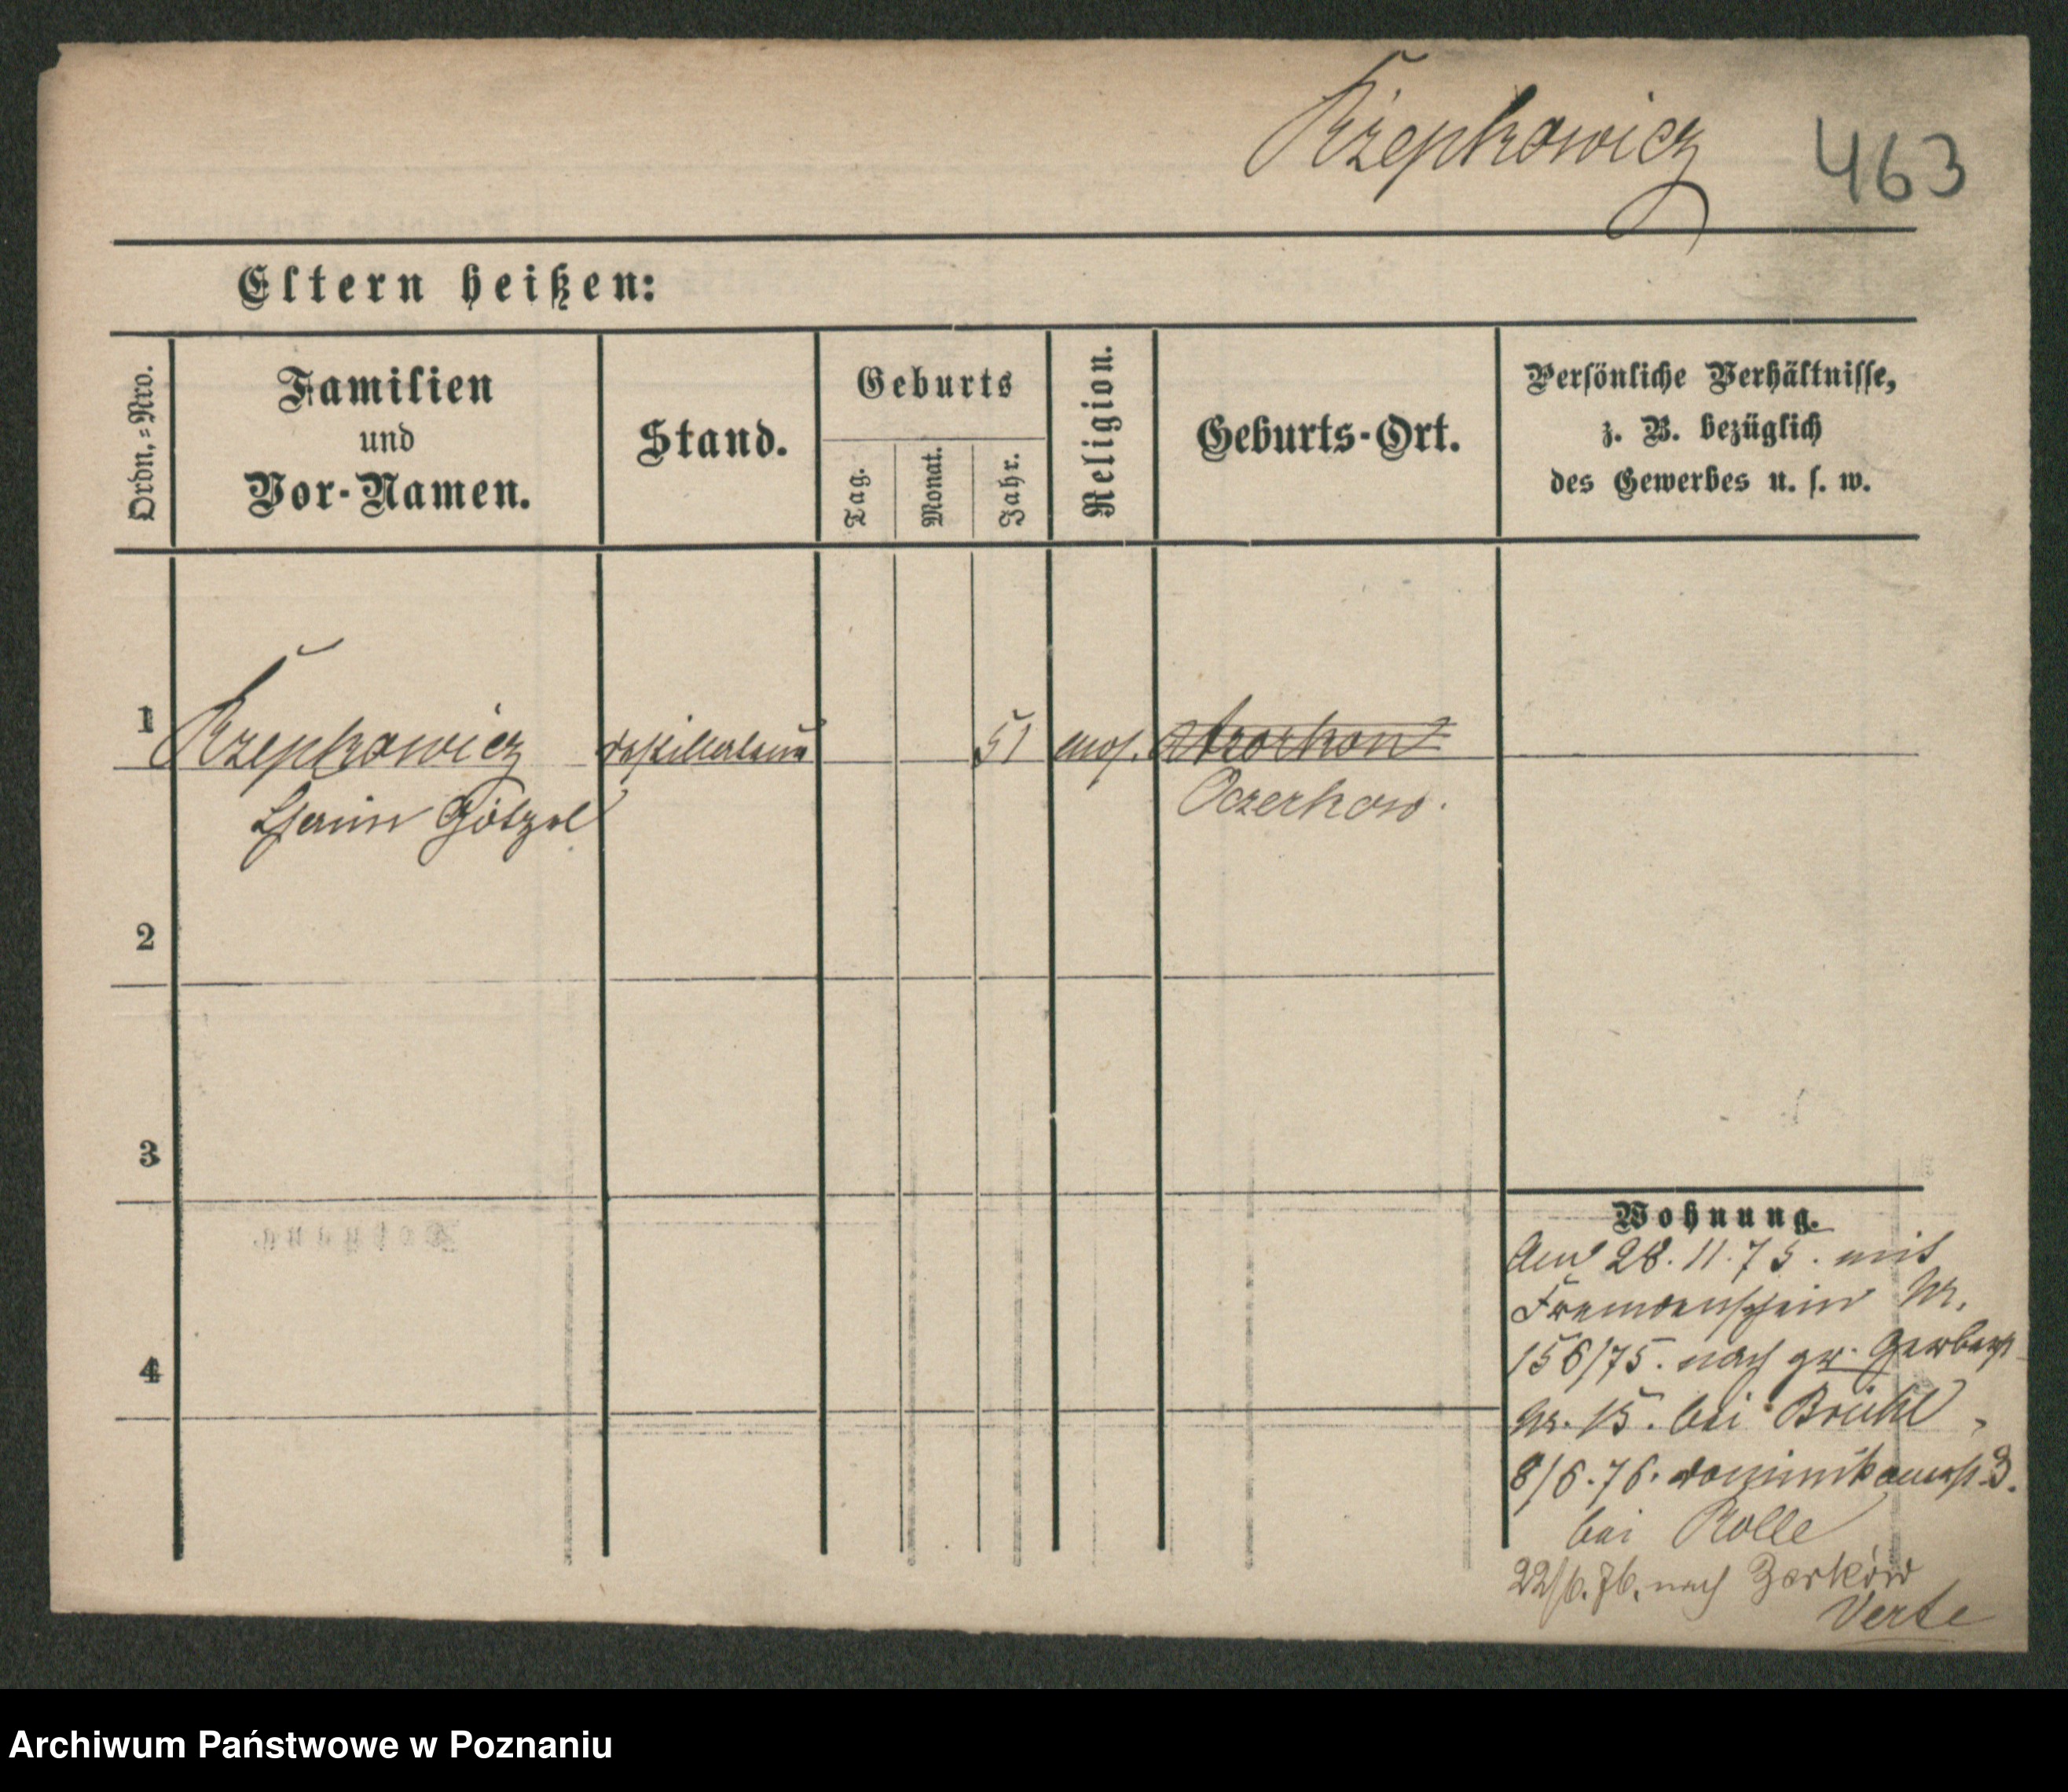 Rżepkowicz 463
Eltern heißen:
Ordn.=Nro.
Familien
und
Vor-Namen.
Stand.
Geburts
Tag.
Monat.
Jahr.
Religion.
Geburts-Ort.
Persönliche Verhältnisse,
z. B. bezüglich
des Gewerbes u. s. w.
1
Rzepkowicz
51
mos.
Oczerkow.
2
3
4
Wohnung.
Am 28. 11. 75. mit
Fremdenschein Nr.
156/75. nach gr. Gerberst
Nr. 15. bei Brühl,
8/6. 76. Dominikanerst. 3.
bei Rolle
22/6. 76. nach Zerków
Verte
Archiwum Państwowe w Poznaniu